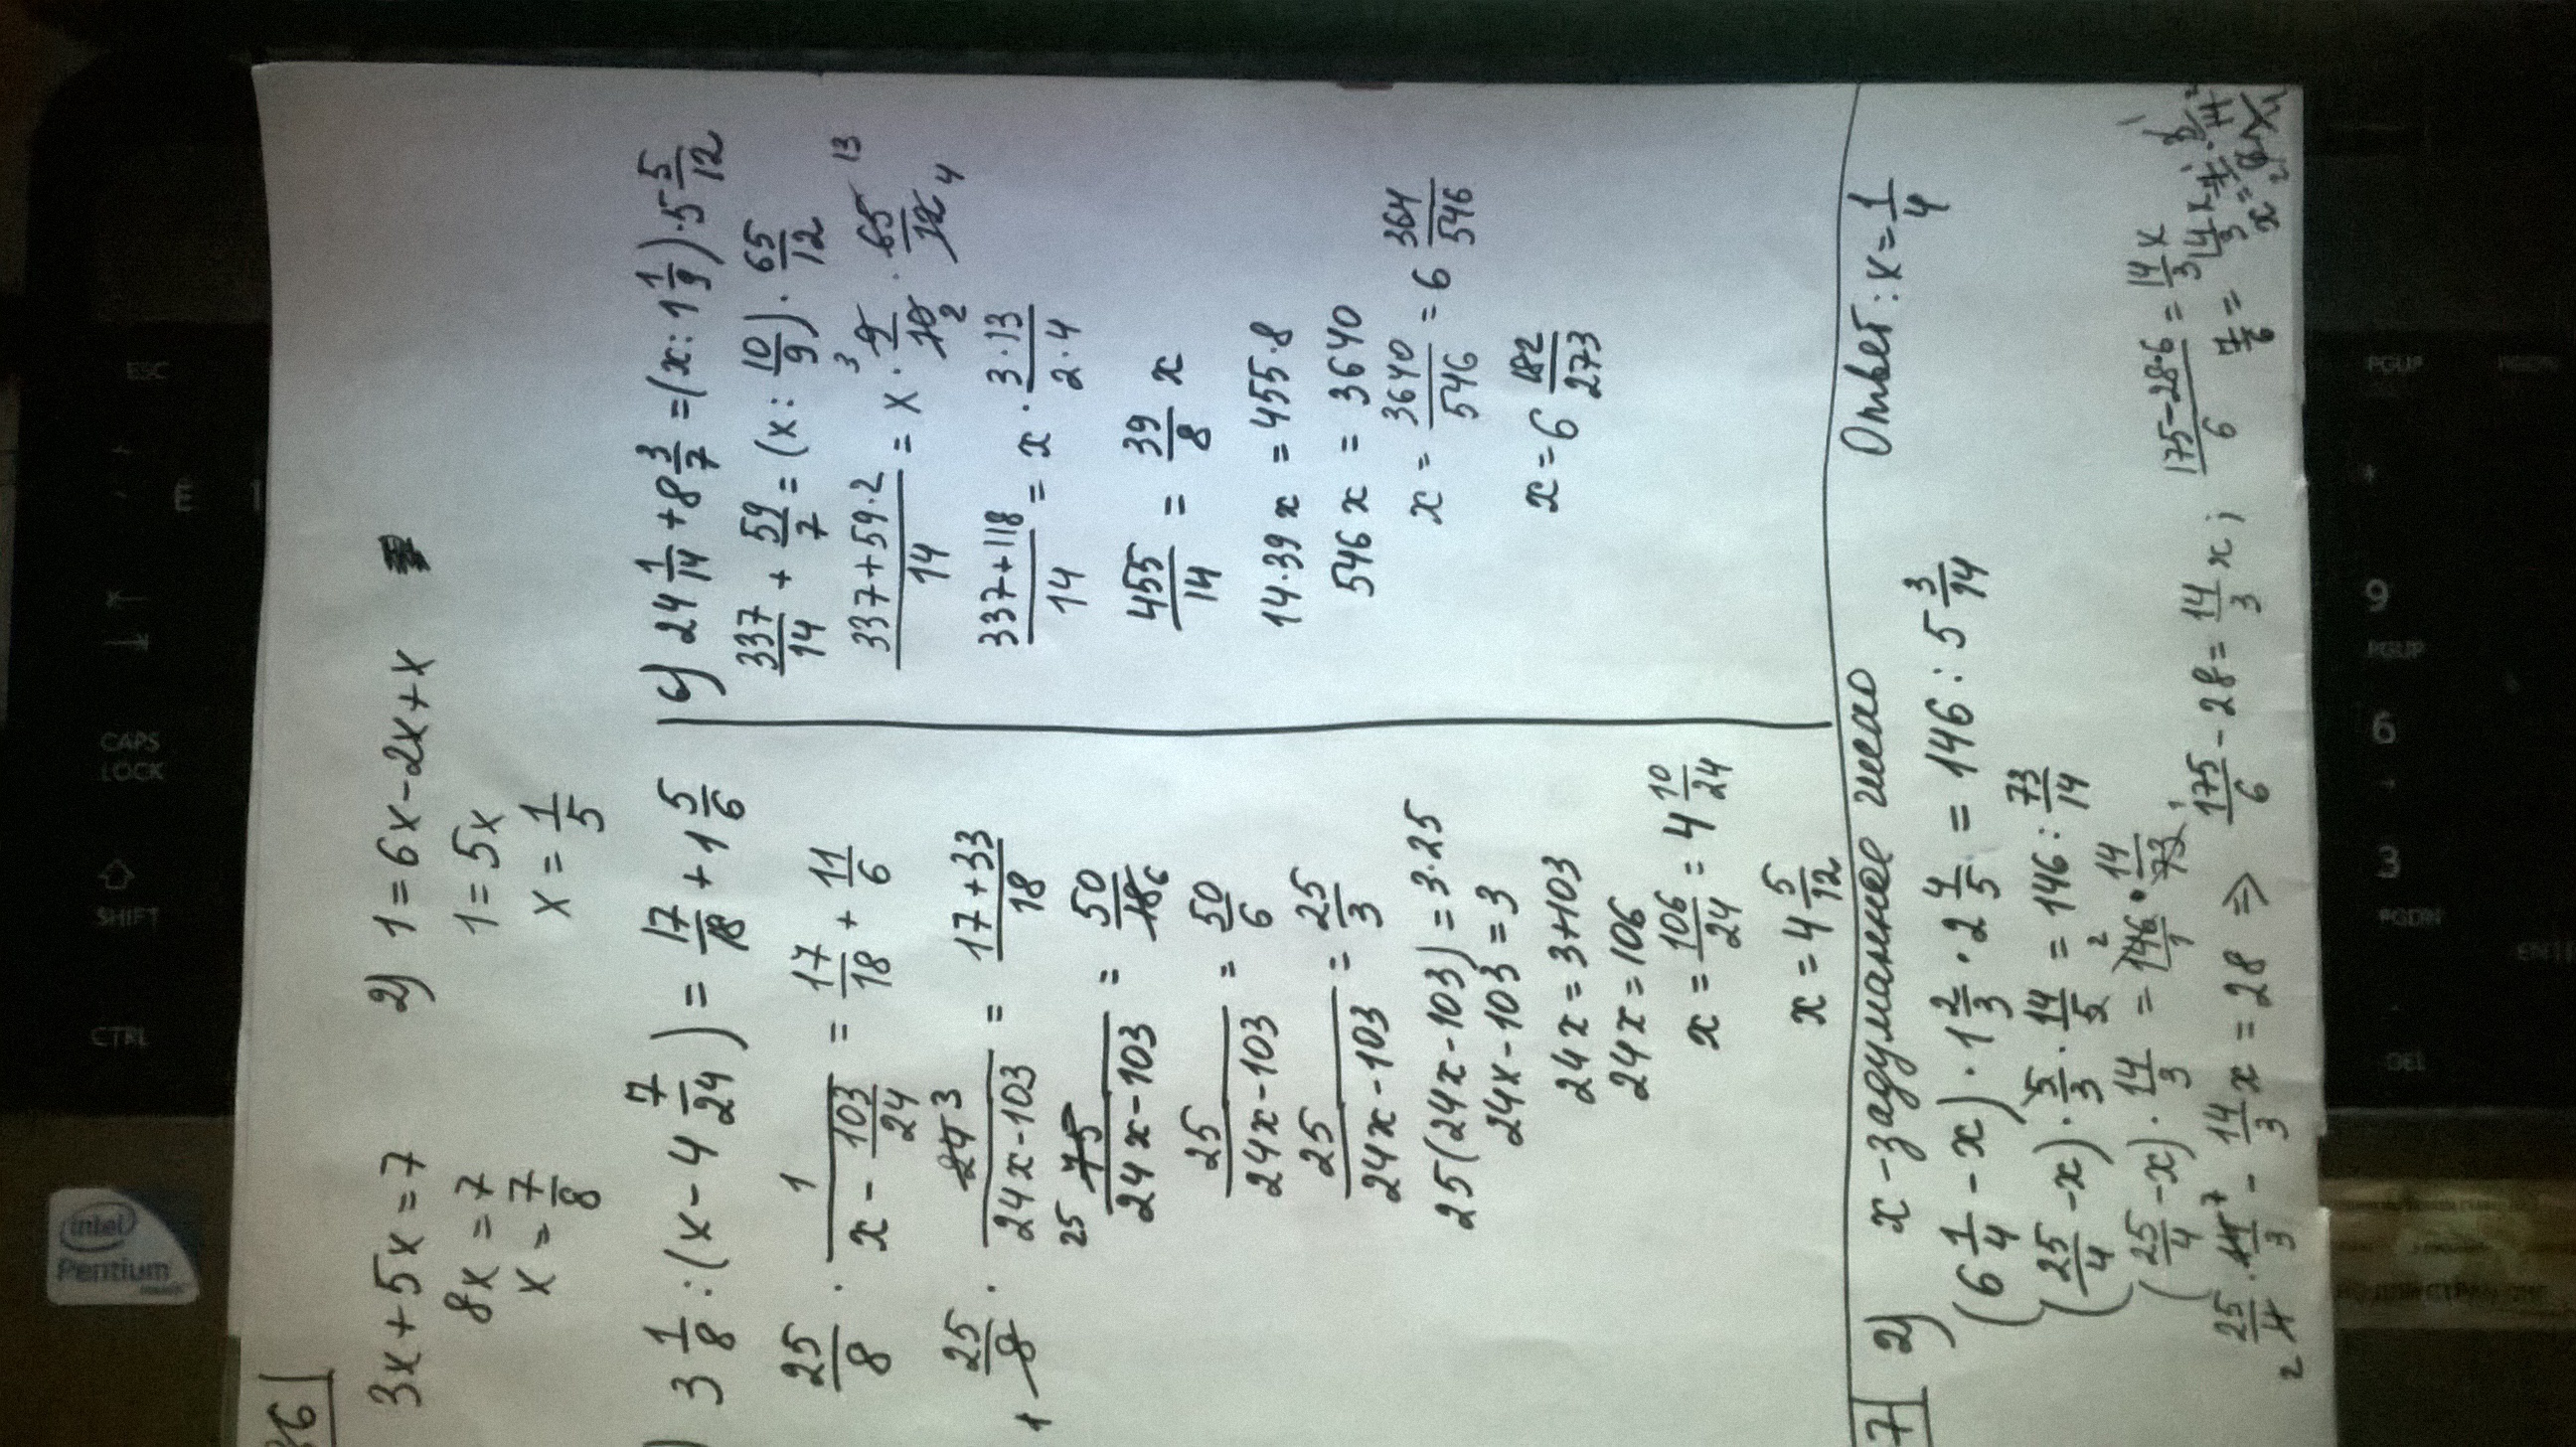 26
3x+5x=7
8x=7
x=7/8
2) 1=6x-2x+x
1=5x
x=1/5
) 3 1/8 : (x-4 7/24) = 17/18 + 1 5/6
25/8 · 1/(x - 103/24) = 17/18 + 11/6
25/8 1 · 24 3/(24x-103) = (17+33)/18
25 75/(24x-103) = 50/18 6
25/(24x-103) = 50/6
25/(24x-103) = 25/3
25(24x-103) = 3·25
24x-103 = 3
24x=3+103
24x=106
x= 106/24 = 4 10/24
x=4 5/12
с) 24 1/14 + 8 3/7 = (x : 1 1/9) · 5 5/12
337/14 + 59/7 = (x : 10/9) · 65/12
(337+59·2)/14 = x · 3 9/10 2 · 65 13/12 4
(337+118)/14 = x · (3·13)/(2·4)
455/14 = 39/8 x
14·39x = 455·8
546x = 3640
x = 3640/546 = 6 364/546
x=6 182/273
7
2) x - задуманное число
Ответ: x=1/4
(6 1/4 - x) · 1 2/3 · 2 4/5 = 146 : 5 3/14
(25/4 - x) · 5/3 · 14/5 = 146 : 73/14
(25/4 - x) · 14/3 = 2 146/1 · 14/73 1
25/4 2 · 14 7/3 - 14/3 x = 28 => 175/6 - 28 = 14/3 x;
(175-28·6)/6 = 14/3 x
7/6 = 14/3 x
intel
Pentium
ESC
CAPS
LOCK
SHIFT
CTRL
PGUP
9
PGUP
6
3
PGDN
DEL